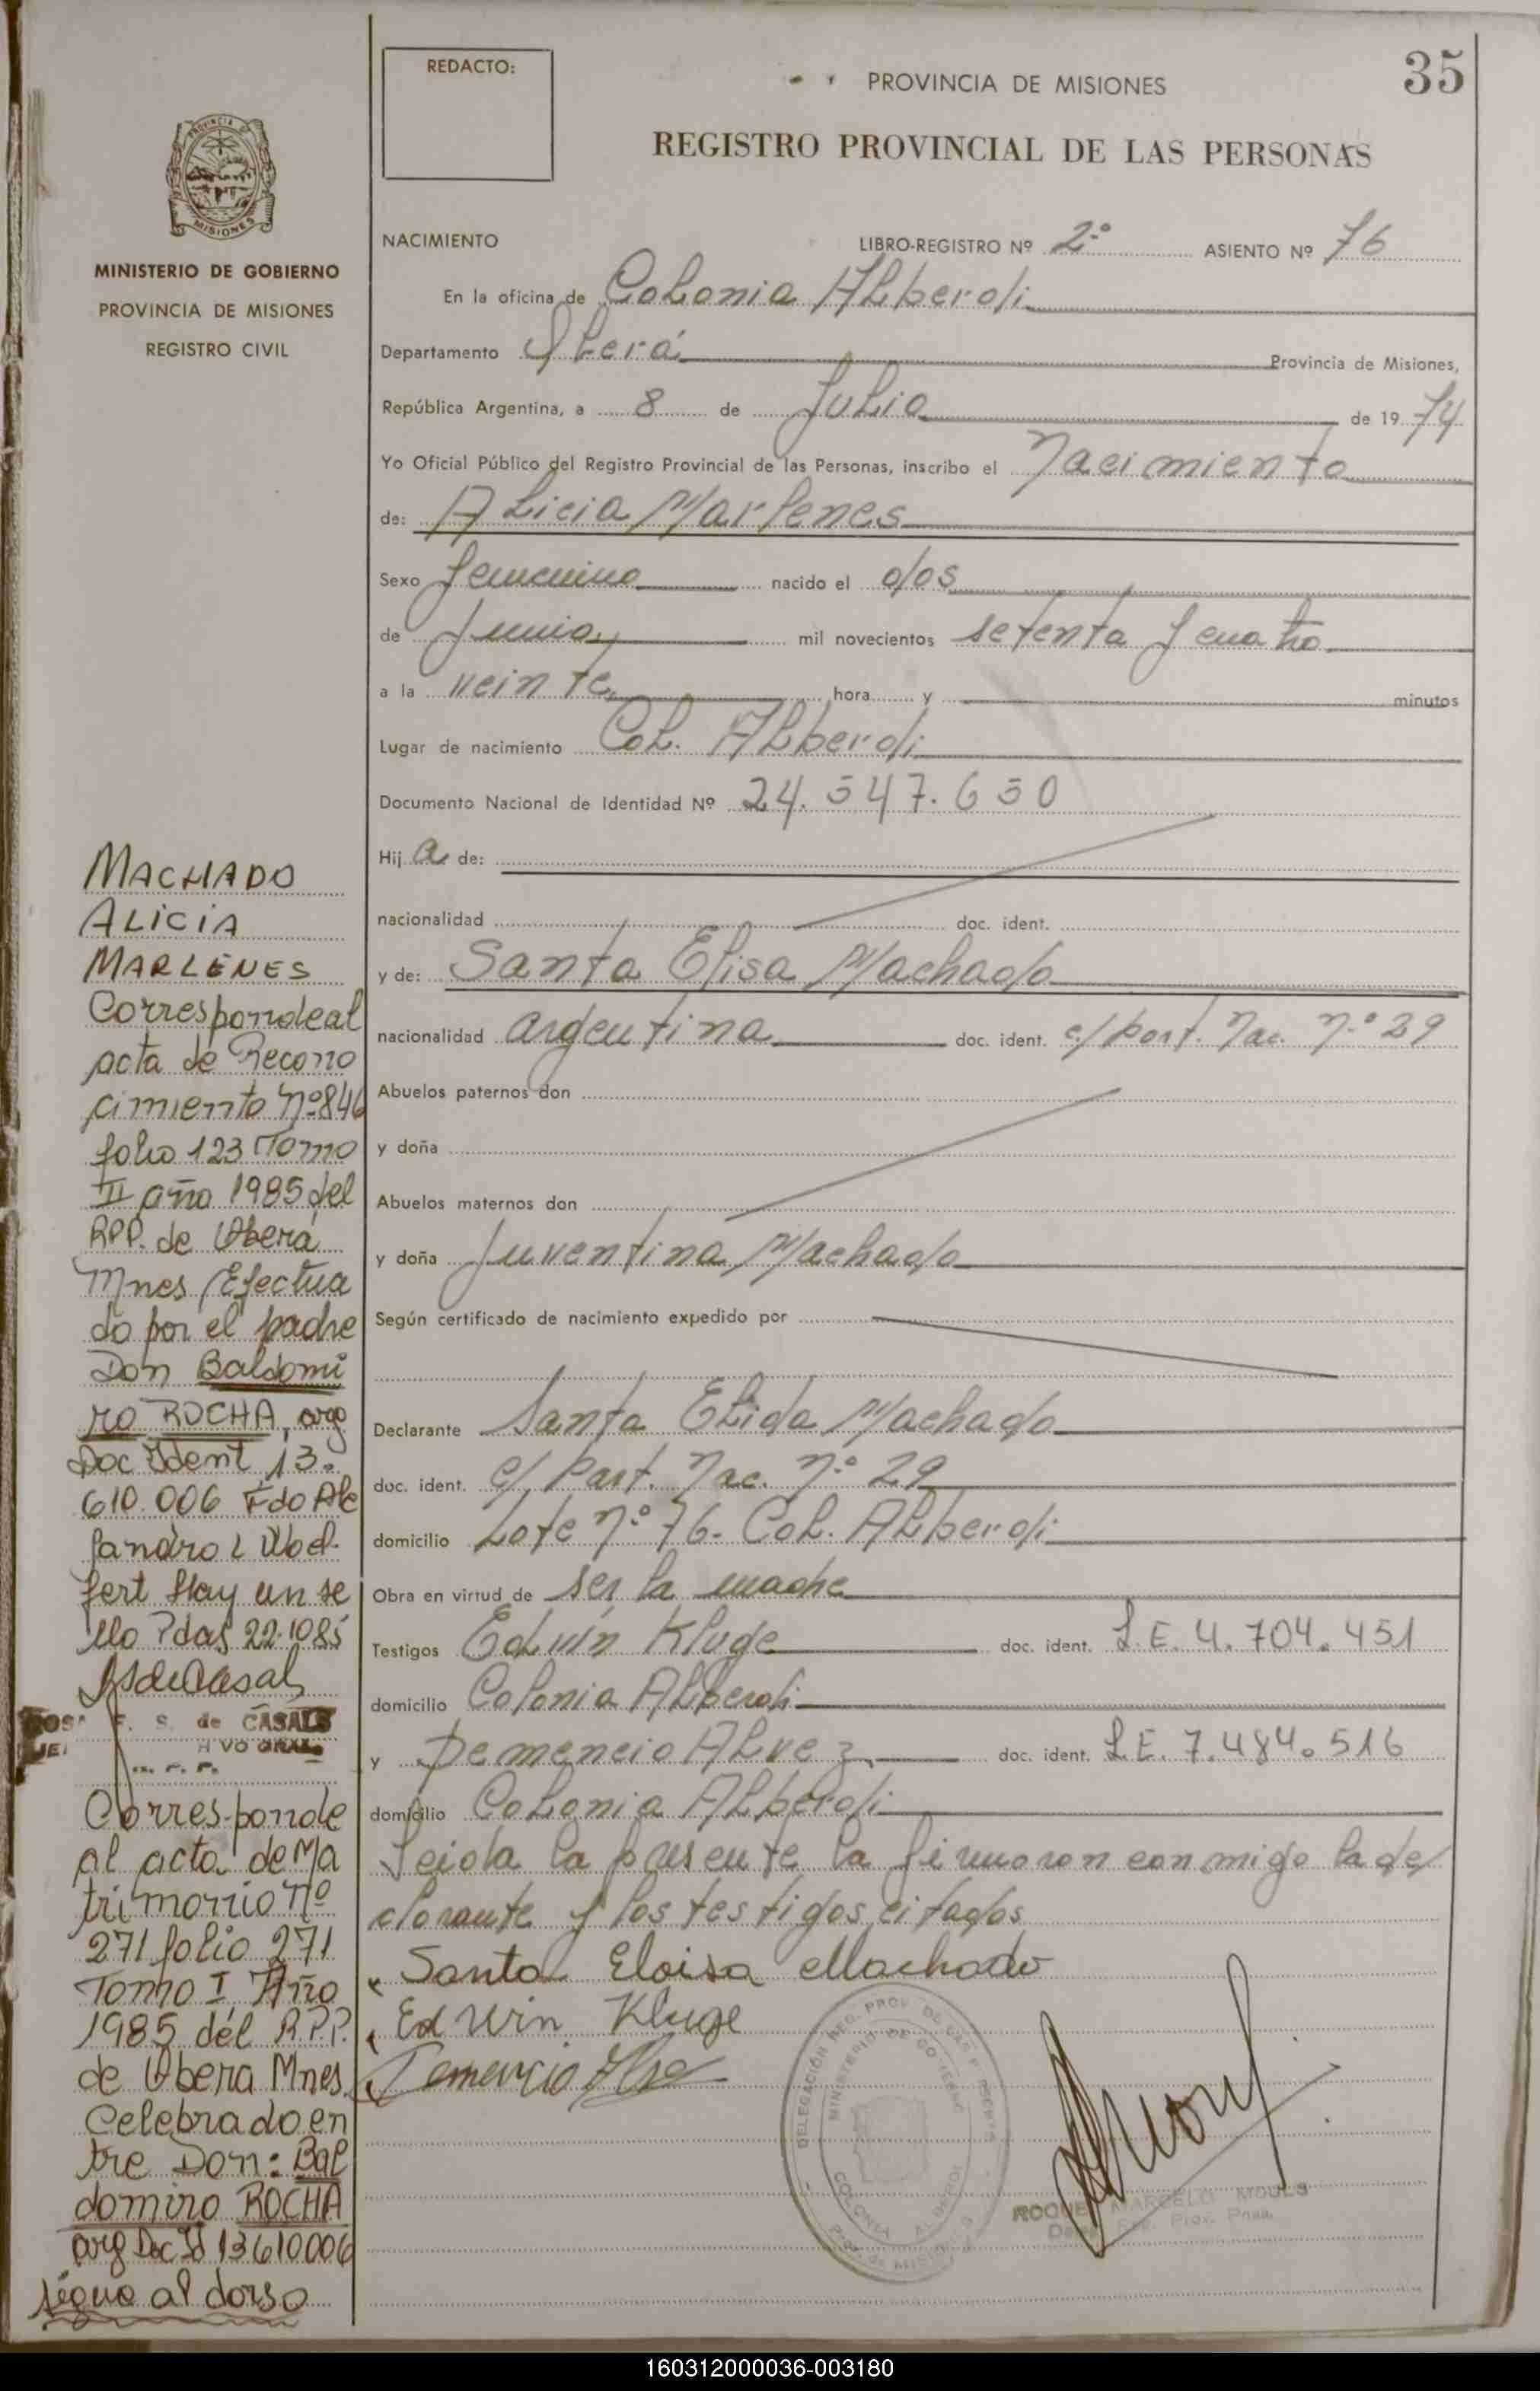 REDACTO:
PROVINCIA DE MISIONES
35
REGISTRO PROVINCIAL DE LAS PERSONAS
MISIONES
MINISTERIO DE GOBIERNO
PROVINCIA DE MISIONES
REGISTRO CIVIL
NACIMIENTO LIBRO-REGISTRO Nº 2º ASIENTO Nº 76
En la oficina de Colonia Alberdi
Departamento Oberá Provincia de Misiones,
República Argentina, a 8 de Julio de 1974
Yo Oficial Público del Registro Provincial de las Personas, inscribo el Nacimiento
de: Alicia Marlenes
Sexo femenino nacido el dos
de Junio mil novecientos setenta y cuatro
a la veinte hora y minutos
Lugar de nacimiento Col. Alberdi
Documento Nacional de Identidad Nº 24.547.650
Hija de:
nacionalidad doc. ident.
y de: Santa Elisa Machado
nacionalidad argentina doc. ident. c/ part. Nac. Nº 29
Abuelos paternos don
y doña
Abuelos maternos don
y doña Juventina Machado
Según certificado de nacimiento expedido por
Declarante Santa Elida Machado
doc. ident. c/ Part. Nac. Nº 29
domicilio Lote Nº 76- Col. Alberdi
Obra en virtud de ser la madre
Testigos Edwin Kluge doc. ident. L.E. 4.704.451
domicilio Colonia Alberdi
y Demencio Alvez doc. ident. L.E. 7.484.516
domicilio Colonia Alberdi
Leida la presente la firmaron conmigo la de
clarante y los testigos citados
Santa Eloisa Machado
Edwin Kluge
DELEGACIÓN REG. PROV. DE LAS PERSONAS
MINISTERIO DE GOBIERNO
COLONIA ALBERDI
Prov. de MISIONES
ROQUE MARCELO
MACHADO
ALICIA
MARLENES
Corresponde al
acta de Recono
cimiento Nº 846
folio 123 Tomo
II año 1985 del
RPP. de Oberá
Mnes Efectua
do por el padre
Don Baldomi
ro ROCHA, arg
Doc Ident 13.
610.006 Fdo Ale
jandro L
Hay un se
llo Pdas 22.10 85
F. S. de CASALS
Corresponde
al acta de Ma
trimonio Nº
271 folio 271
Tomo I Año
1985 del R.P.P.
de Obera Mnes
Celebrado en
tre Don: Bal
domiro ROCHA
arg Doc Id 13610006
sigue al dorso
160312000036-003180